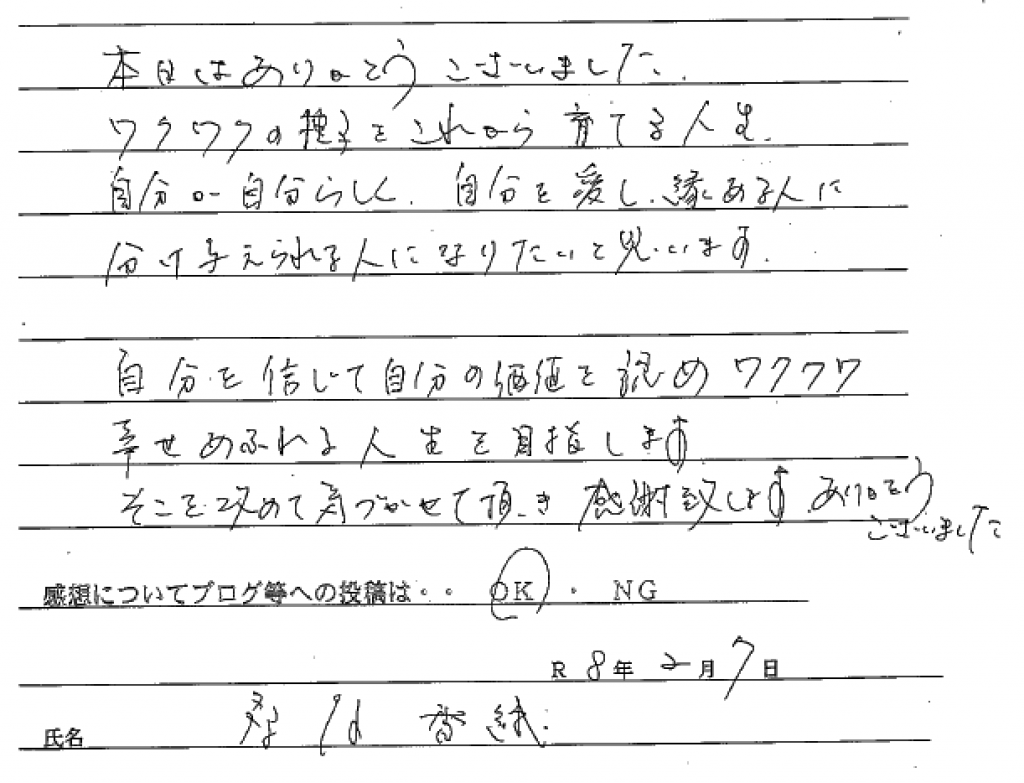 本日はありがとうございました.
ワクワクの種子をこれから育てる人生.
自分が自分らしく. 自分を愛し. 縁ある人に
分け与えられる人になりたいと思います.
自分を信じて自分の価値を認めワクワク
幸せあふれる人生を目指します
そこを改めて気づかせて頂き感謝致します. ありがとう
ございました
感想についてブログ等への投稿は・・ OK ・ NG
R 8年 2月 7日
氏名 香織